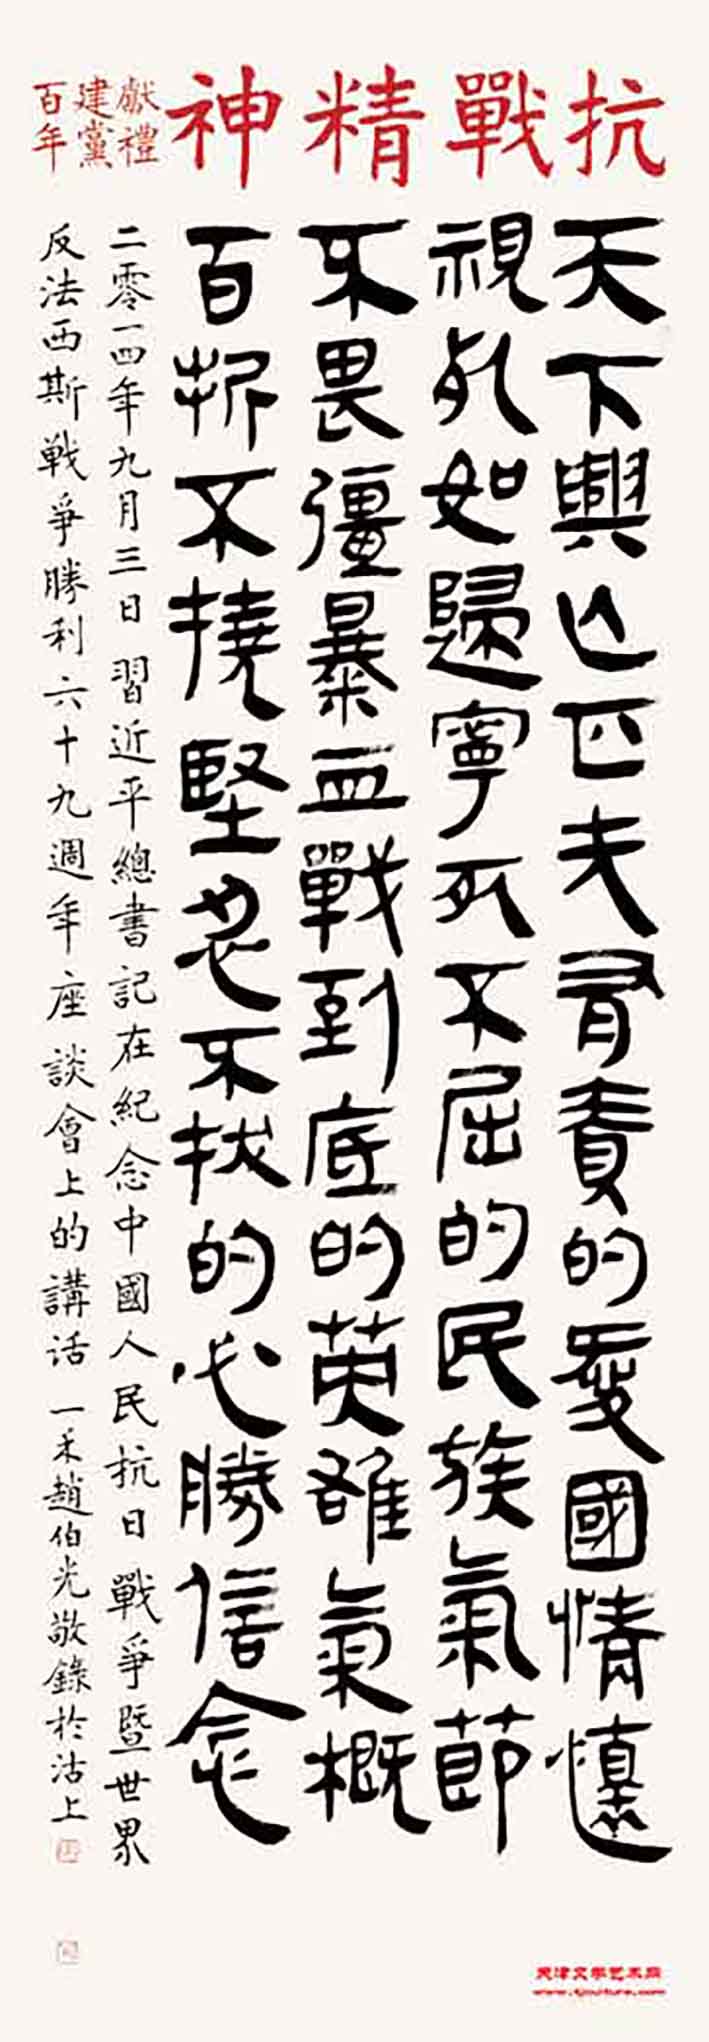 抗戰精神
獻禮
建黨
百年
天下興亡匹夫有責的愛國情懷
視死如歸寧死不屈的民族氣節
不畏彊暴血戰到底的英雄氣概
百折不撓堅忍不拔的必勝信念
二零一四年九月三日習近平總書記在紀念中國人民抗日戰爭暨世界
反法西斯戰爭勝利六十九週年座談會上的講话一禾趙伯光敬錄於沽上
天津文学艺术网